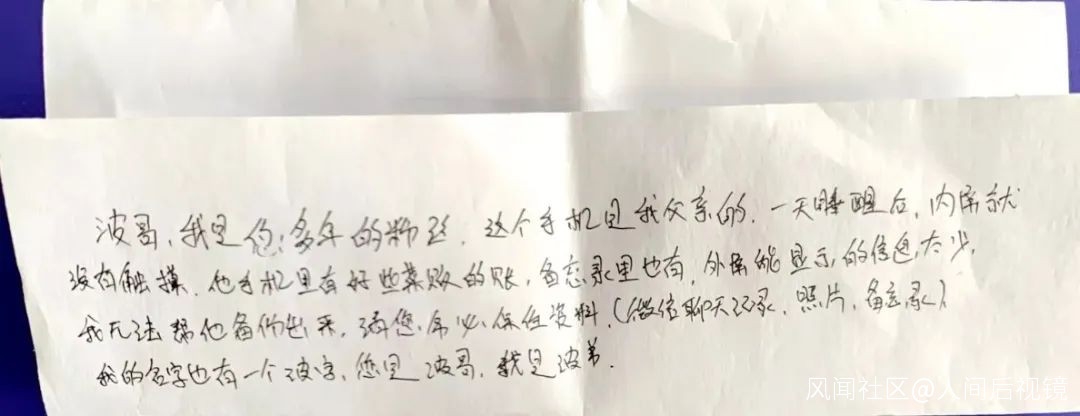 波哥,我是您多年的粉丝.这个手机是我父亲的.一天睡醒后,内屏就
没有触摸.他手机里有好些菜贩的账,备忘录里也有,外屏能显示的信息太少,
我无法帮他备份出来,请您务必保住资料.(微信聊天记录、照片,备忘录)
我的名字也有一个波字,您是波哥,我是波弟.
风闻社区@人间后视镜